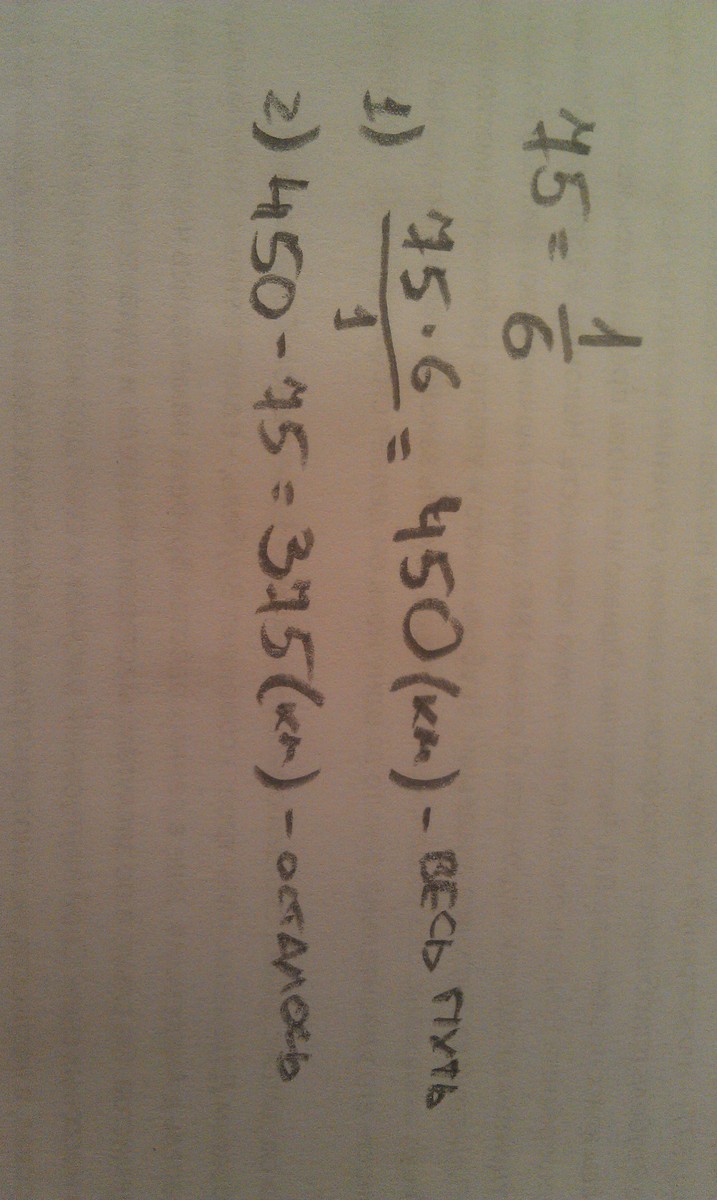 75 = 1/6
1) 75·6/1 = 450 (км) - ВЕСЬ ПУТЬ
2) 450 - 75 = 375 (км) - ОСТАЛОСЬ